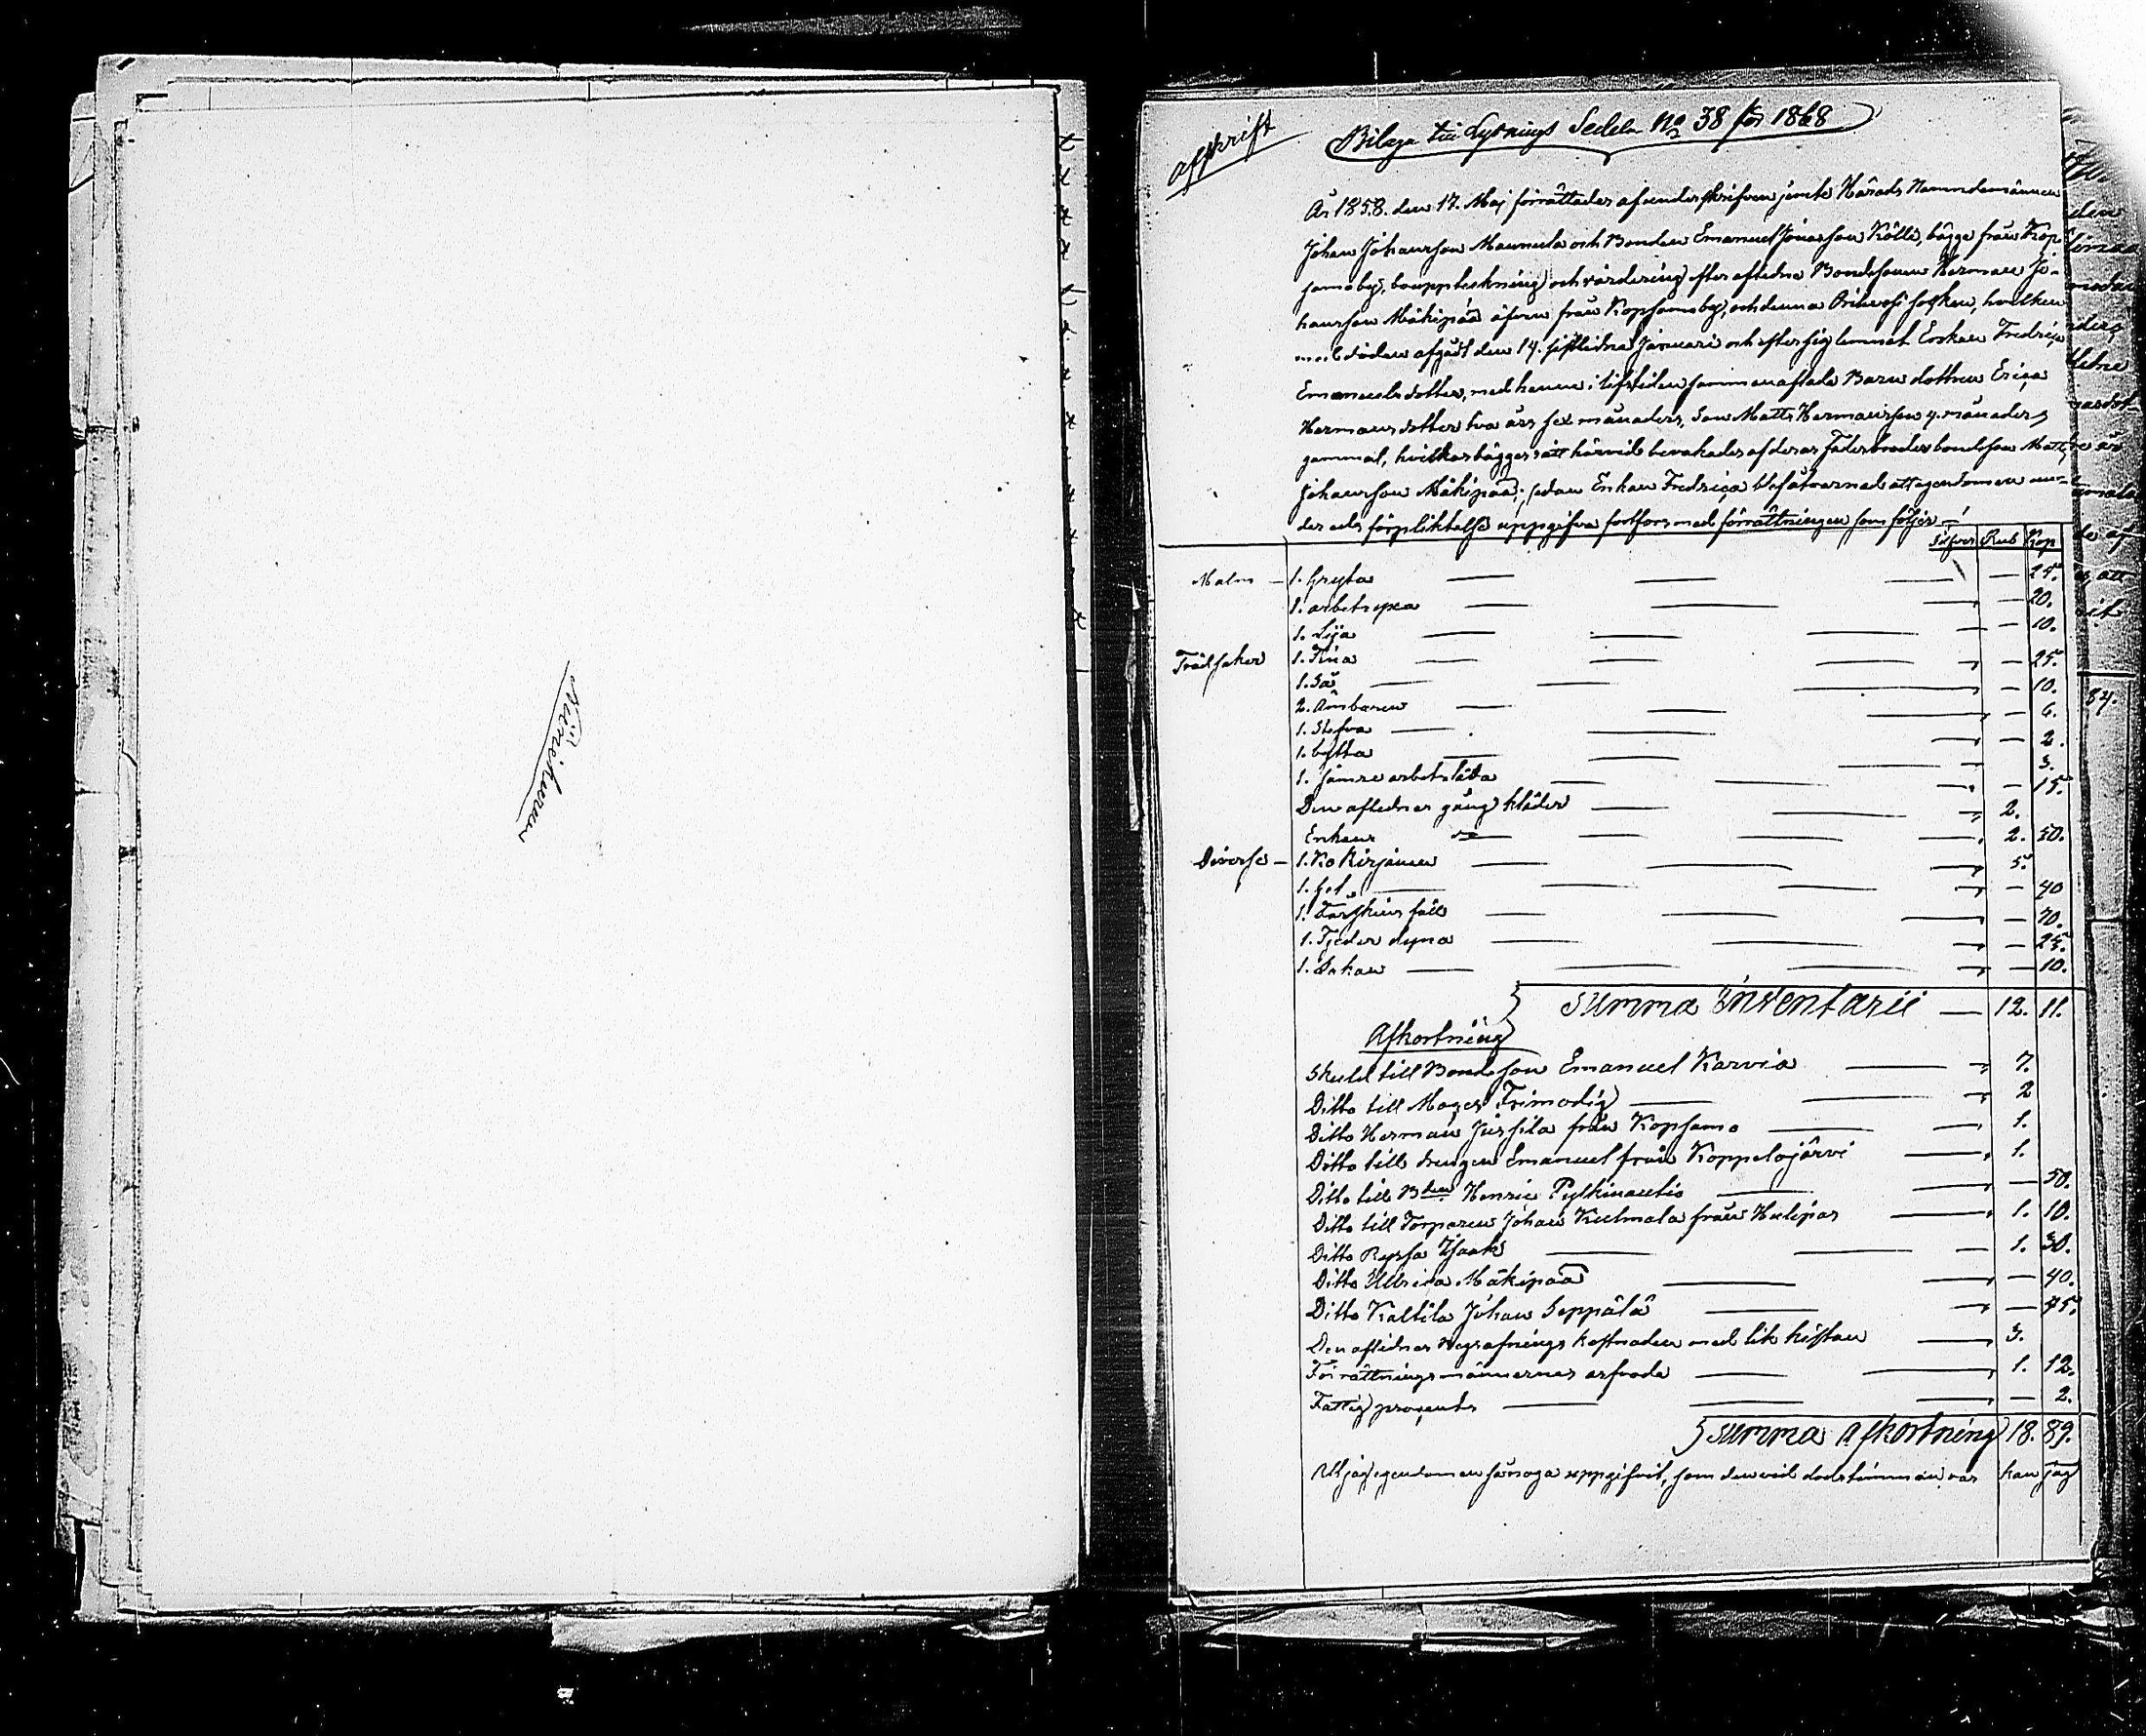 Afskrift
Bilaga till Lysnings Sedeln No 38 för 1868
År 1858. den 17. Maj förrättades af underskrifven jemte Härads Nämndemännen
Johan Johansson Mannula och Bonden Emanuel Jonasson Kölli, bägge från Kop-
samo by, bouppteckning och värdering efter aflidne Bondesonen Herman Jo-
hansson Mäkipää äfven från Kopsamo by, och denna Orihvesi socken, hvilken
med döden afgått den 14. sistlidne Januari och efter sig lemnat Enkan Fredrica
Emanuelsdotter, med henne i lifstiden sammanaflade Barn dottren Erica
Hermansdotter två års sex månaders, Son Matts Hermansson 4. månader
gammal, hvilkas bägges rätt härvid bevakades af deras Faderbroder bondeson Matts
Johansson Mäkipää; sedan Enkan Fredrica blef åtvarnad att egendomen un-
der eds förpliktelse uppgifva fortfors med förrättningen som följer
Silfver Rub Kop
Malm — 1. Gryta — 25.
1. arbetsyxa — 20.
1. Lija — 10.
Trädsaker 1. Tina — 25.
1. Så — 10.
2. Ämbaren — 6.
1. Stefva — 2.
1. bytta — 3.
1. sämre arbetsläda — 15.
Den aflidnes gång kläder 2.
Enkans do 2. 50.
Diverse — 1. Ko Kirjanen 5.
1. Get — 40
1. Fårskins fäll — 70.
1. Fjeder dyna — 25.
1. Lakan — 10.
Summa Inventarii — 12. 11.
Afkortning
Skuld till Bondeson Emanuel Karvia 7.
Ditto till Mager Frimodig 2
Ditto Herman Jussila från Kopsamo 1.
Ditto till drengen Emanuel från Koppelojärvi 1.
Ditto till Bden Henric Pylkinautio — 50.
Ditto till Torparen Johan Kulmala från Hulipas 1. 10.
Ditto Ryssa Isaak 1. 30.
Ditto Ulrica Mäkipää — 40.
Ditto Kaltila Johan Seppälä — 45.
Den aflidnes Begrafnings kostnaden med lik kistan 3.
Förrättningsmännernes arfvode 1. 12.
Fattig procents — 2.
Summa Afkortning 18. 89.
Att jag egendomen så noga uppgifvit, som den vid dödstimman var kan jag